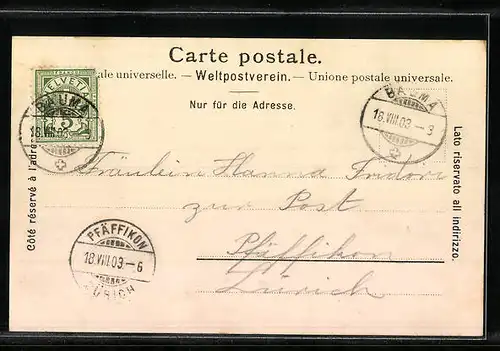 Carte postale.
ale universelle. — Weltpostverein. — Unione postale universale.
Nur für die Adresse.
Côté réservé à l'adre
Lato riservato all indirizzo.
FRANCO
HELVETIA
5
BAUMA
18.VIII.03
BAUMA
18.VIII.03 - 3
Fräulein Hanna
zur Post
Pfäffikon
Zürich
PFÄFFIKON
18.VIII.03. - 6
ZÜRICH